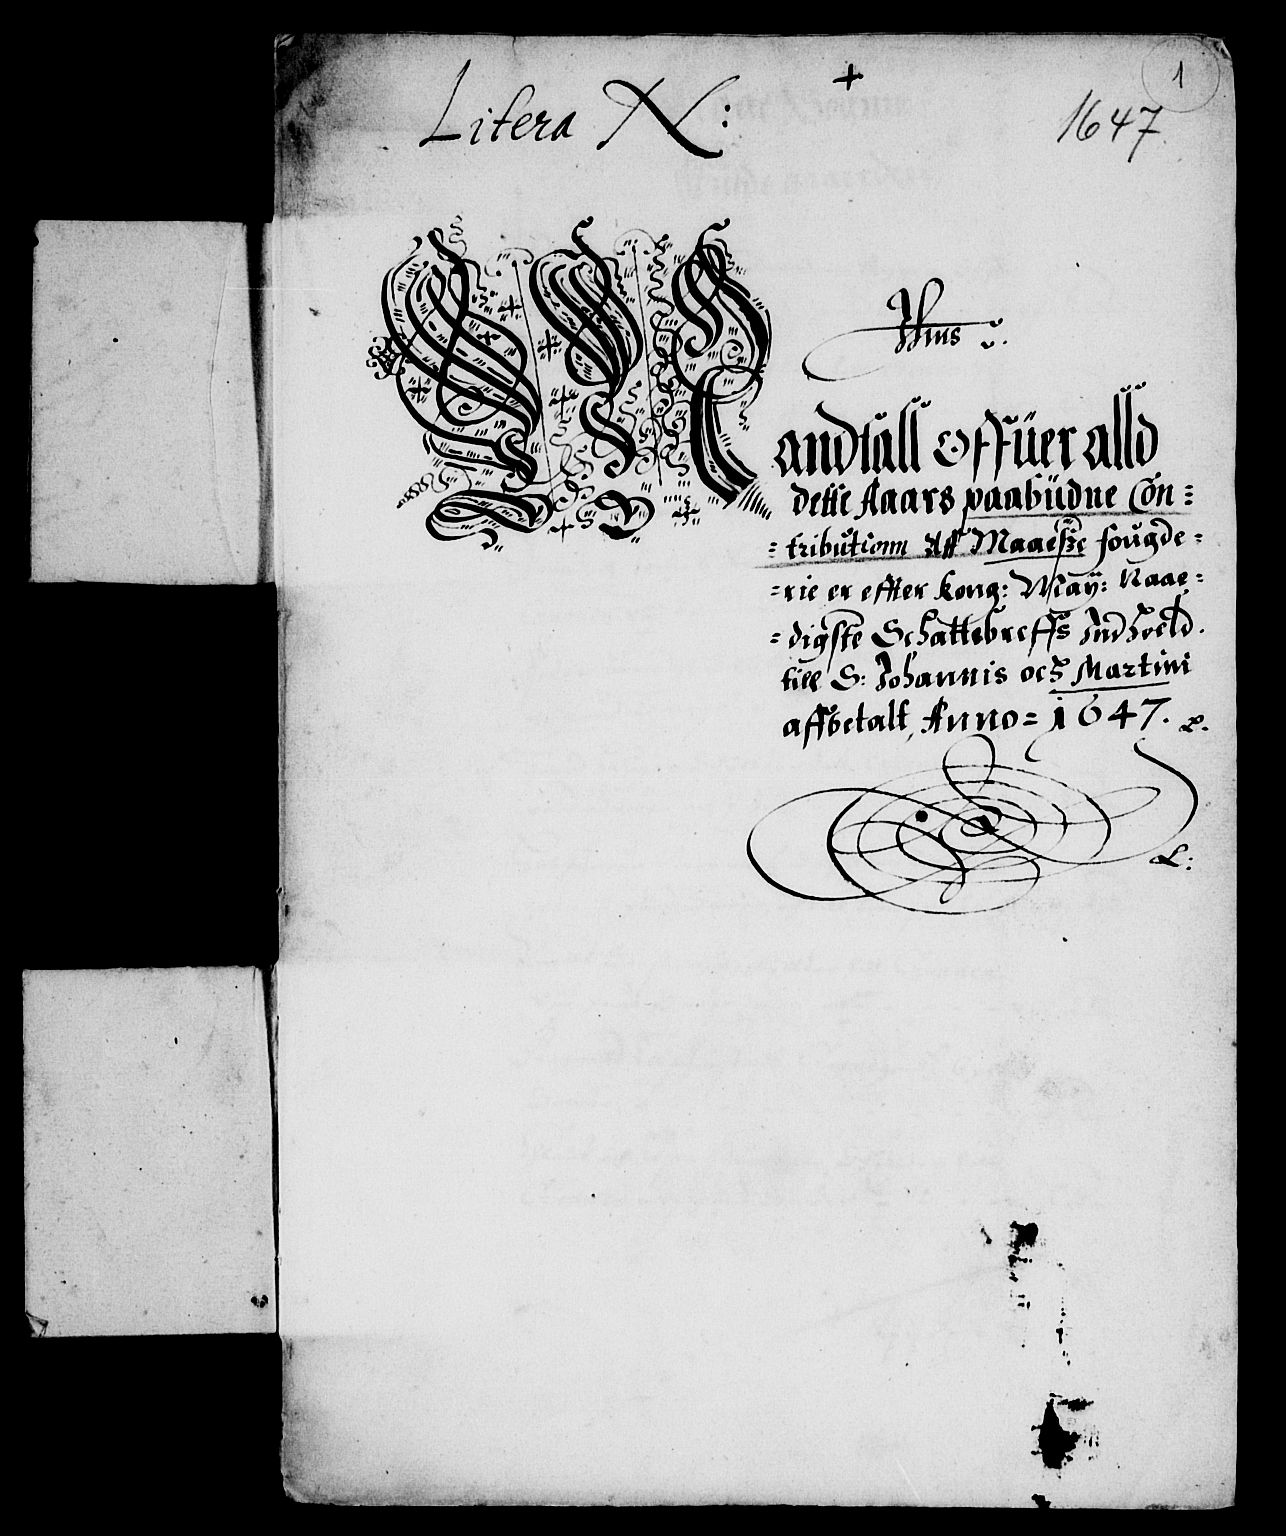 1
Litera N:
1647
Jhus
Mandtall Offuer alld
dette Aaars paabüdne Con=
=tribution Aff Maaesße fougde=
=rie er effter Kong: May: Naae=
=digste Schattebreffs Indhold.
till S: Johannis och Martini
affbetalt, Anno= 1647.
L: